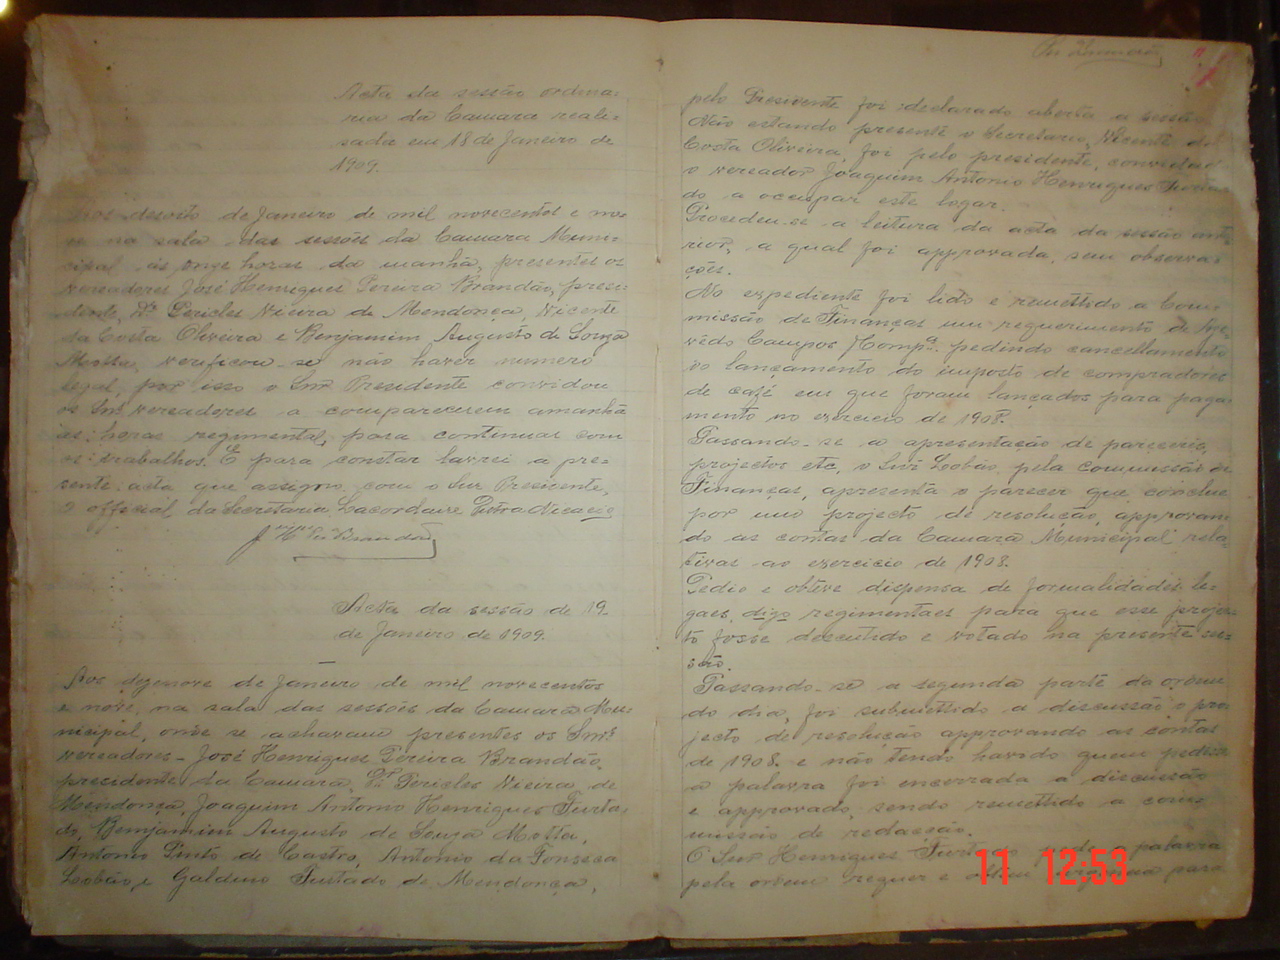 Acta da sessão ordina-
ria da Camara reali-
sada em 18 de Janeiro de
1909.
Aos desoito de Janeiro de mil novecentos e no-
ve na sala das sessões da Camara Muni-
cipal ás onze horas da manhã, presentes os
vereadores José Henriques Pereira Brandão, presi-
dente, Dr. Pericles Vieira de Mendonça, Vicente
da Costa Oliveira e Benjamim Augusto de Souza
Motta, verificou-se não haver numero
legal, por isso o Snr. Presidente convidou
os Snrs. vereadores a comparecerem amanhã
as horas regimental, para continuar com
os trabalhos. E para constar lavrei a pre-
sente acta que assigno com o Snr Presidente,
O official da Secretaria Lacordaire
Acta da sessão de 19
de Janeiro de 1909.
Aos dezenove de Janeiro de mil novecentos
e nove, na sala das sessões da Camara Mu-
nicipal, onde se achavam presentes os Snrs.
vereadores - José Henriques Pereira Brandão,
presidente da Camara, Dr. Pericles Vieira de
Mendonça, Joaquim Antonio Henriques Furta-
do, Bemjamim Augusto de Souza Motta,
Antonio Pinto de Castro, Antonio da Fonseca
Lobão, e Galdino Furtado de Mendonça,
pelo Presidente foi declarado aberta a sessão
Não estando presente o Secretario, Vicente da
Costa Oliveira, foi pelo presidente, convidado
o vereador Joaquim Antonio Henriques Furta-
do a occupar este logar.
Procedeu-se a leitura da acta da sessão ante-
rior, a qual foi approvada, sem observa-
ções.
No expediente foi lido e remettido a Com-
missão de Finanças um requerimento de Aze-
vedo Campos Compª. pedindo cancellamento
do lançamento do imposto de compradores
de café em que foram lançados para paga-
mento no exercicio de 1908.
Passando-se a apresentação de pareceres,
projectos etc, o Snr Lobão, pela commissão de
Finanças, apresenta o parecer que conclue
por um projecto de resolução, approvan-
do as contas da Camara Municipal rela-
tivas ao exercicio de 1908.
Pedio e obteve dispensa de formalidades le-
gaes, digo regimentaes para que esse projec-
to fosse descutido e votado na presente ses-
são.
Passando-se a segunda parte da ordem
do dia, foi submettido a discussão o pro-
jecto de resolução approvando as contas
de 1908 e não tendo havido quem pedisse
a palavra foi encerrada a discussão
e approvado, sendo remettido a com-
missão de redacção.
O Snr Henriques Furtado pede a palavra
pela ordem requer e para
11 12:53